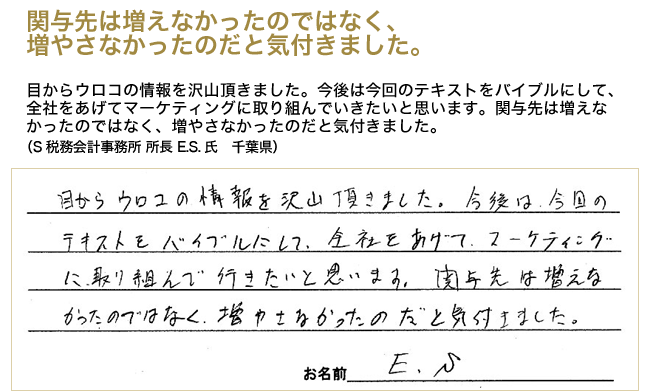 関与先は増えなかったのではなく、
増やさなかったのだと気付きました。
目からウロコの情報を沢山頂きました。今後は今回のテキストをバイブルにして、
全社をあげてマーケティングに取り組んでいきたいと思います。関与先は増えな
かったのではなく、増やさなかったのだと気付きました。
（S 税務会計事務所 所長 E.S. 氏　千葉県）
目からウロコの情報を沢山頂きました。今後は、今回の
テキストをバイブルにして、全社をあげて、マーケティング
に、取り組んで行きたいと思います。関与先は増えな
かったのではなく、増やさなかったのだと気付きました。
お名前 E.S